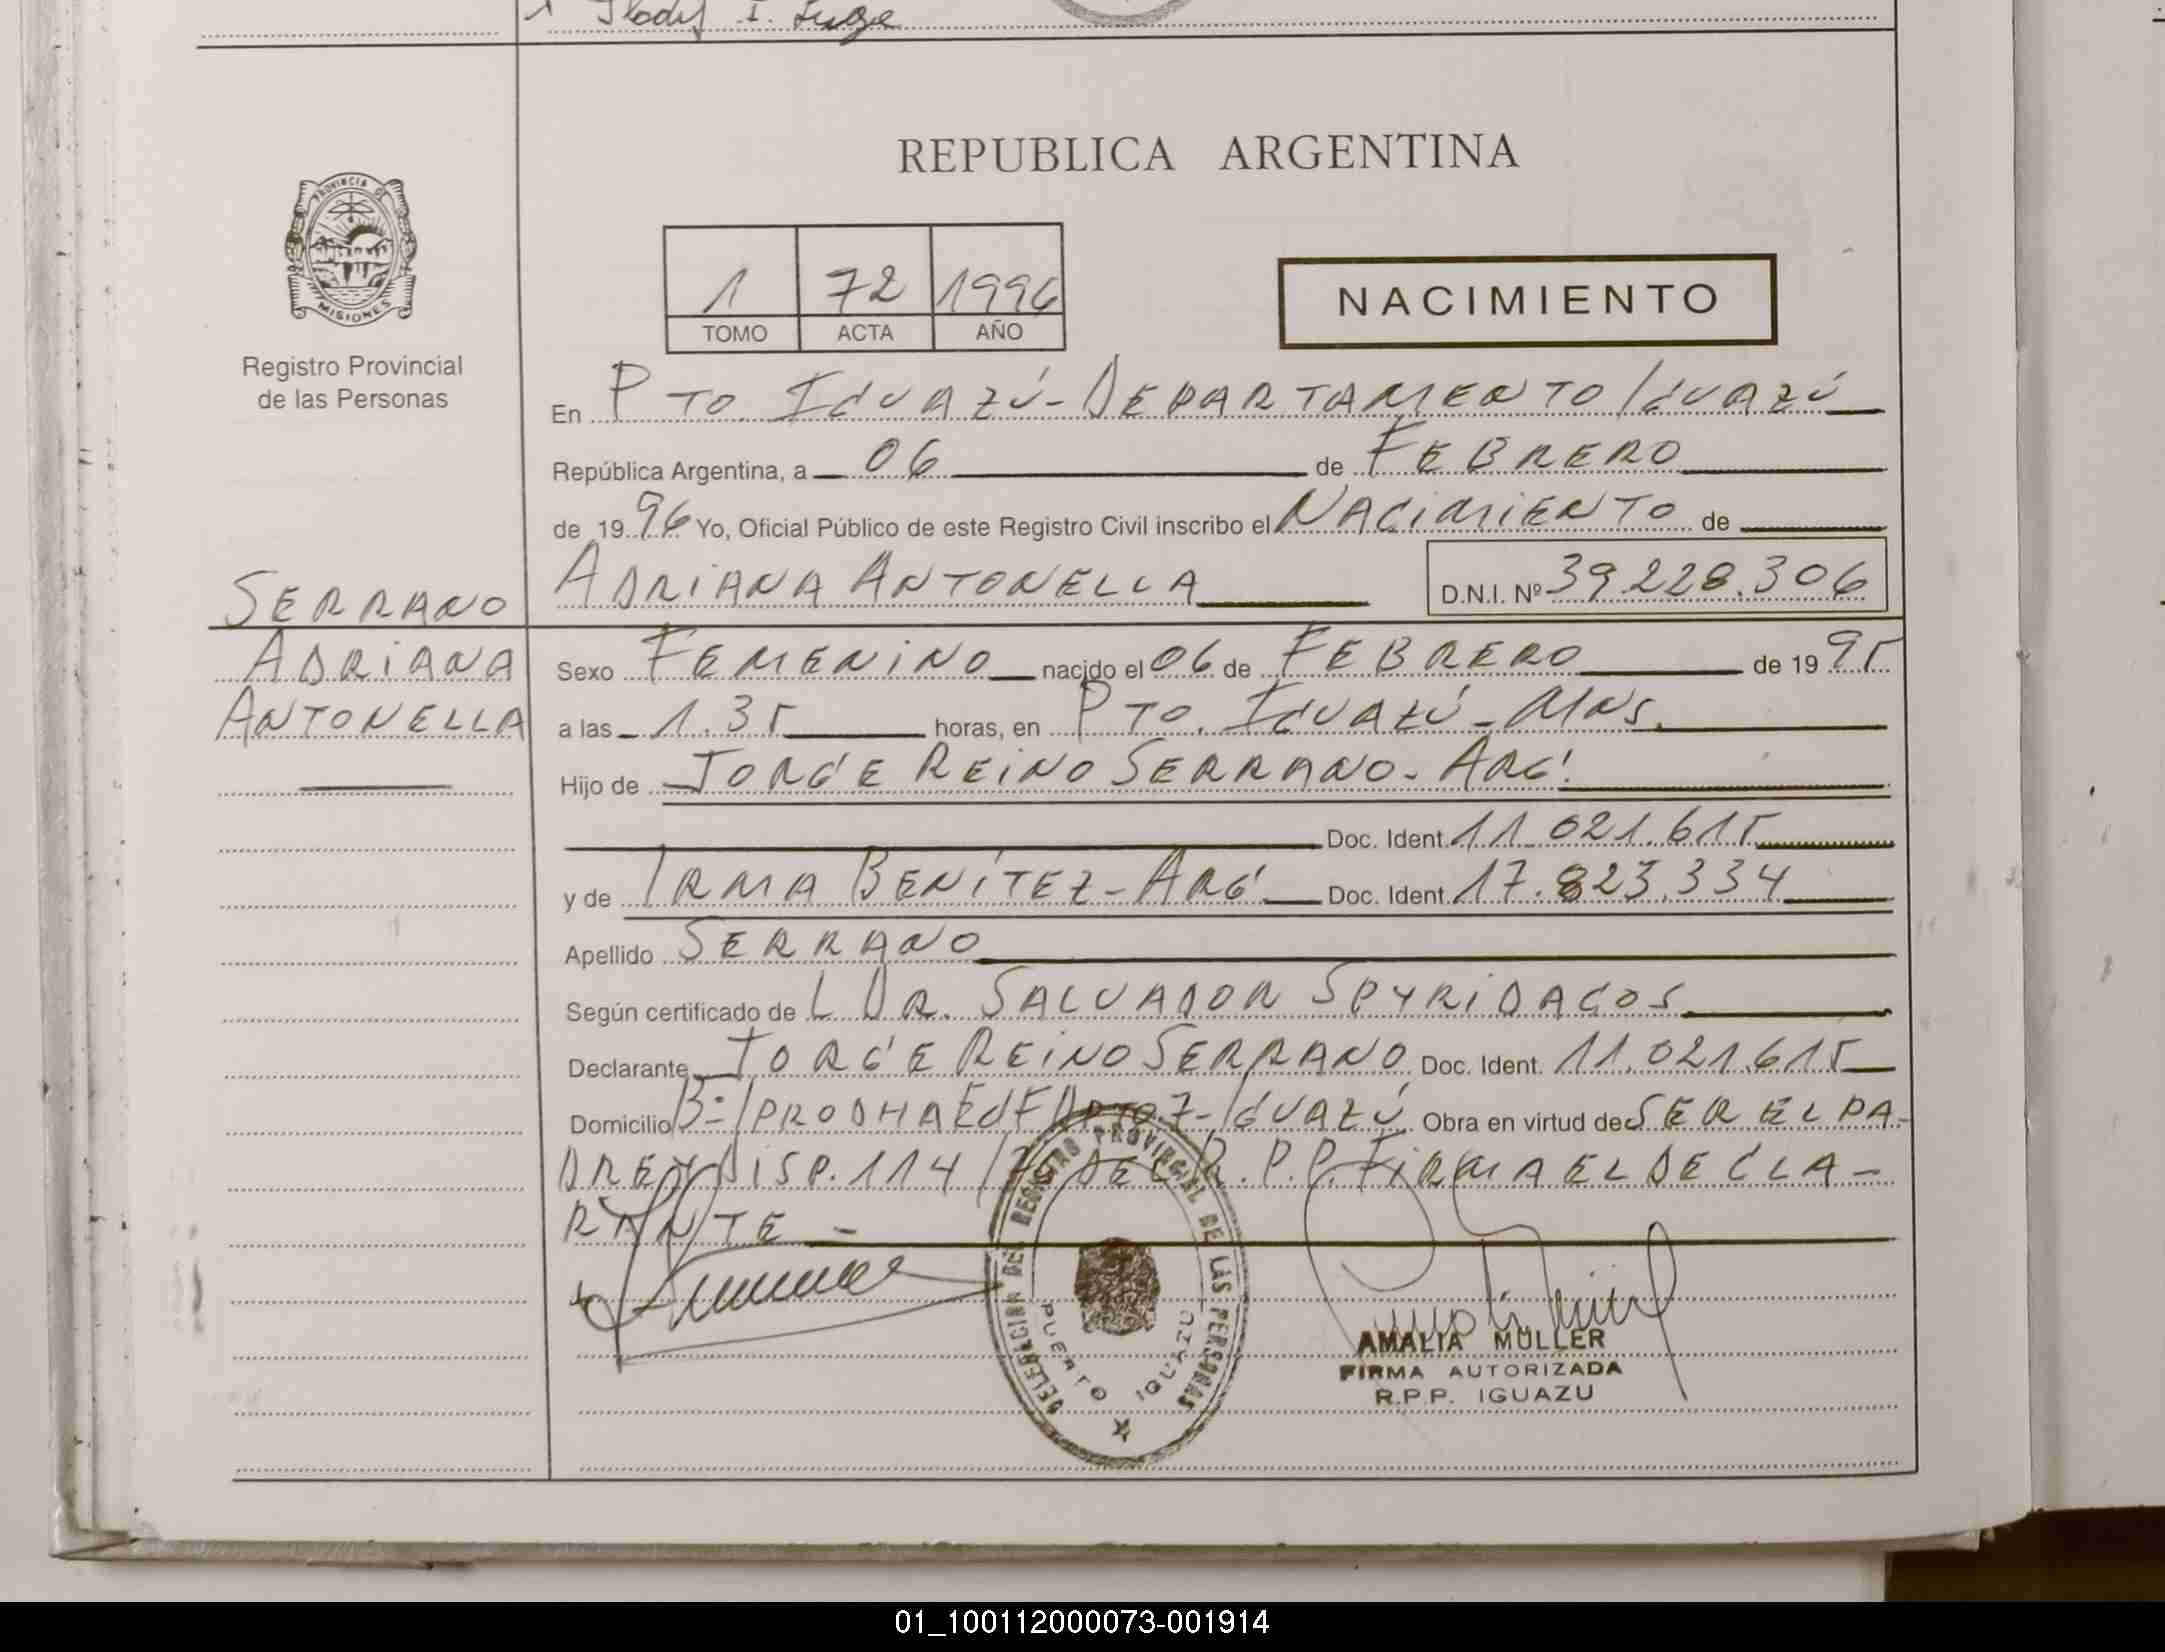 REPUBLICA ARGENTINA
PROVINCIA DE
MISIONES
Registro Provincial
de las Personas
1 72 1996
TOMO ACTA AÑO
NACIMIENTO
En PTO. IGUAZÚ - DEPARTAMENTO IGUAZÚ
República Argentina, a 06 de FEBRERO
de 1996 Yo, Oficial Público de este Registro Civil inscribo el NACIMIENTO de
ADRIANA ANTONELLA D.N.I. Nº 39.228.306
SERRANO
ADRIANA
ANTONELLA
Sexo FEMENINO nacido el 06 de FEBRERO de 1995
a las 1.35 horas, en PTO. IGUAZÚ - MNS.
Hijo de JORGE REINO SERRANO - ARG.
Doc. Ident. 11.021.615
y de IRMA BENÍTEZ - ARG Doc. Ident. 17.823.334
Apellido SERRANO
Según certificado de L DR. SALVADOR SPYRIDAGOS
Declarante JORGE REINO SERRANO Doc. Ident. 11.021.615
Domicilio Bº IPRODHA EDF DPTO 7 - IGUAZÚ Obra en virtud de SER EL PA-
DRE Y DISP. 114/ DEL R.P.P. FIRMA EL DECLA-
RANTE -
DELEGACION DEL REGISTRO PROVINCIAL DE LAS PERSONAS
PUERTO IGUAZU
AMALIA MÜLLER
FIRMA AUTORIZADA
R.P.P. IGUAZU
01_100112000073-001914